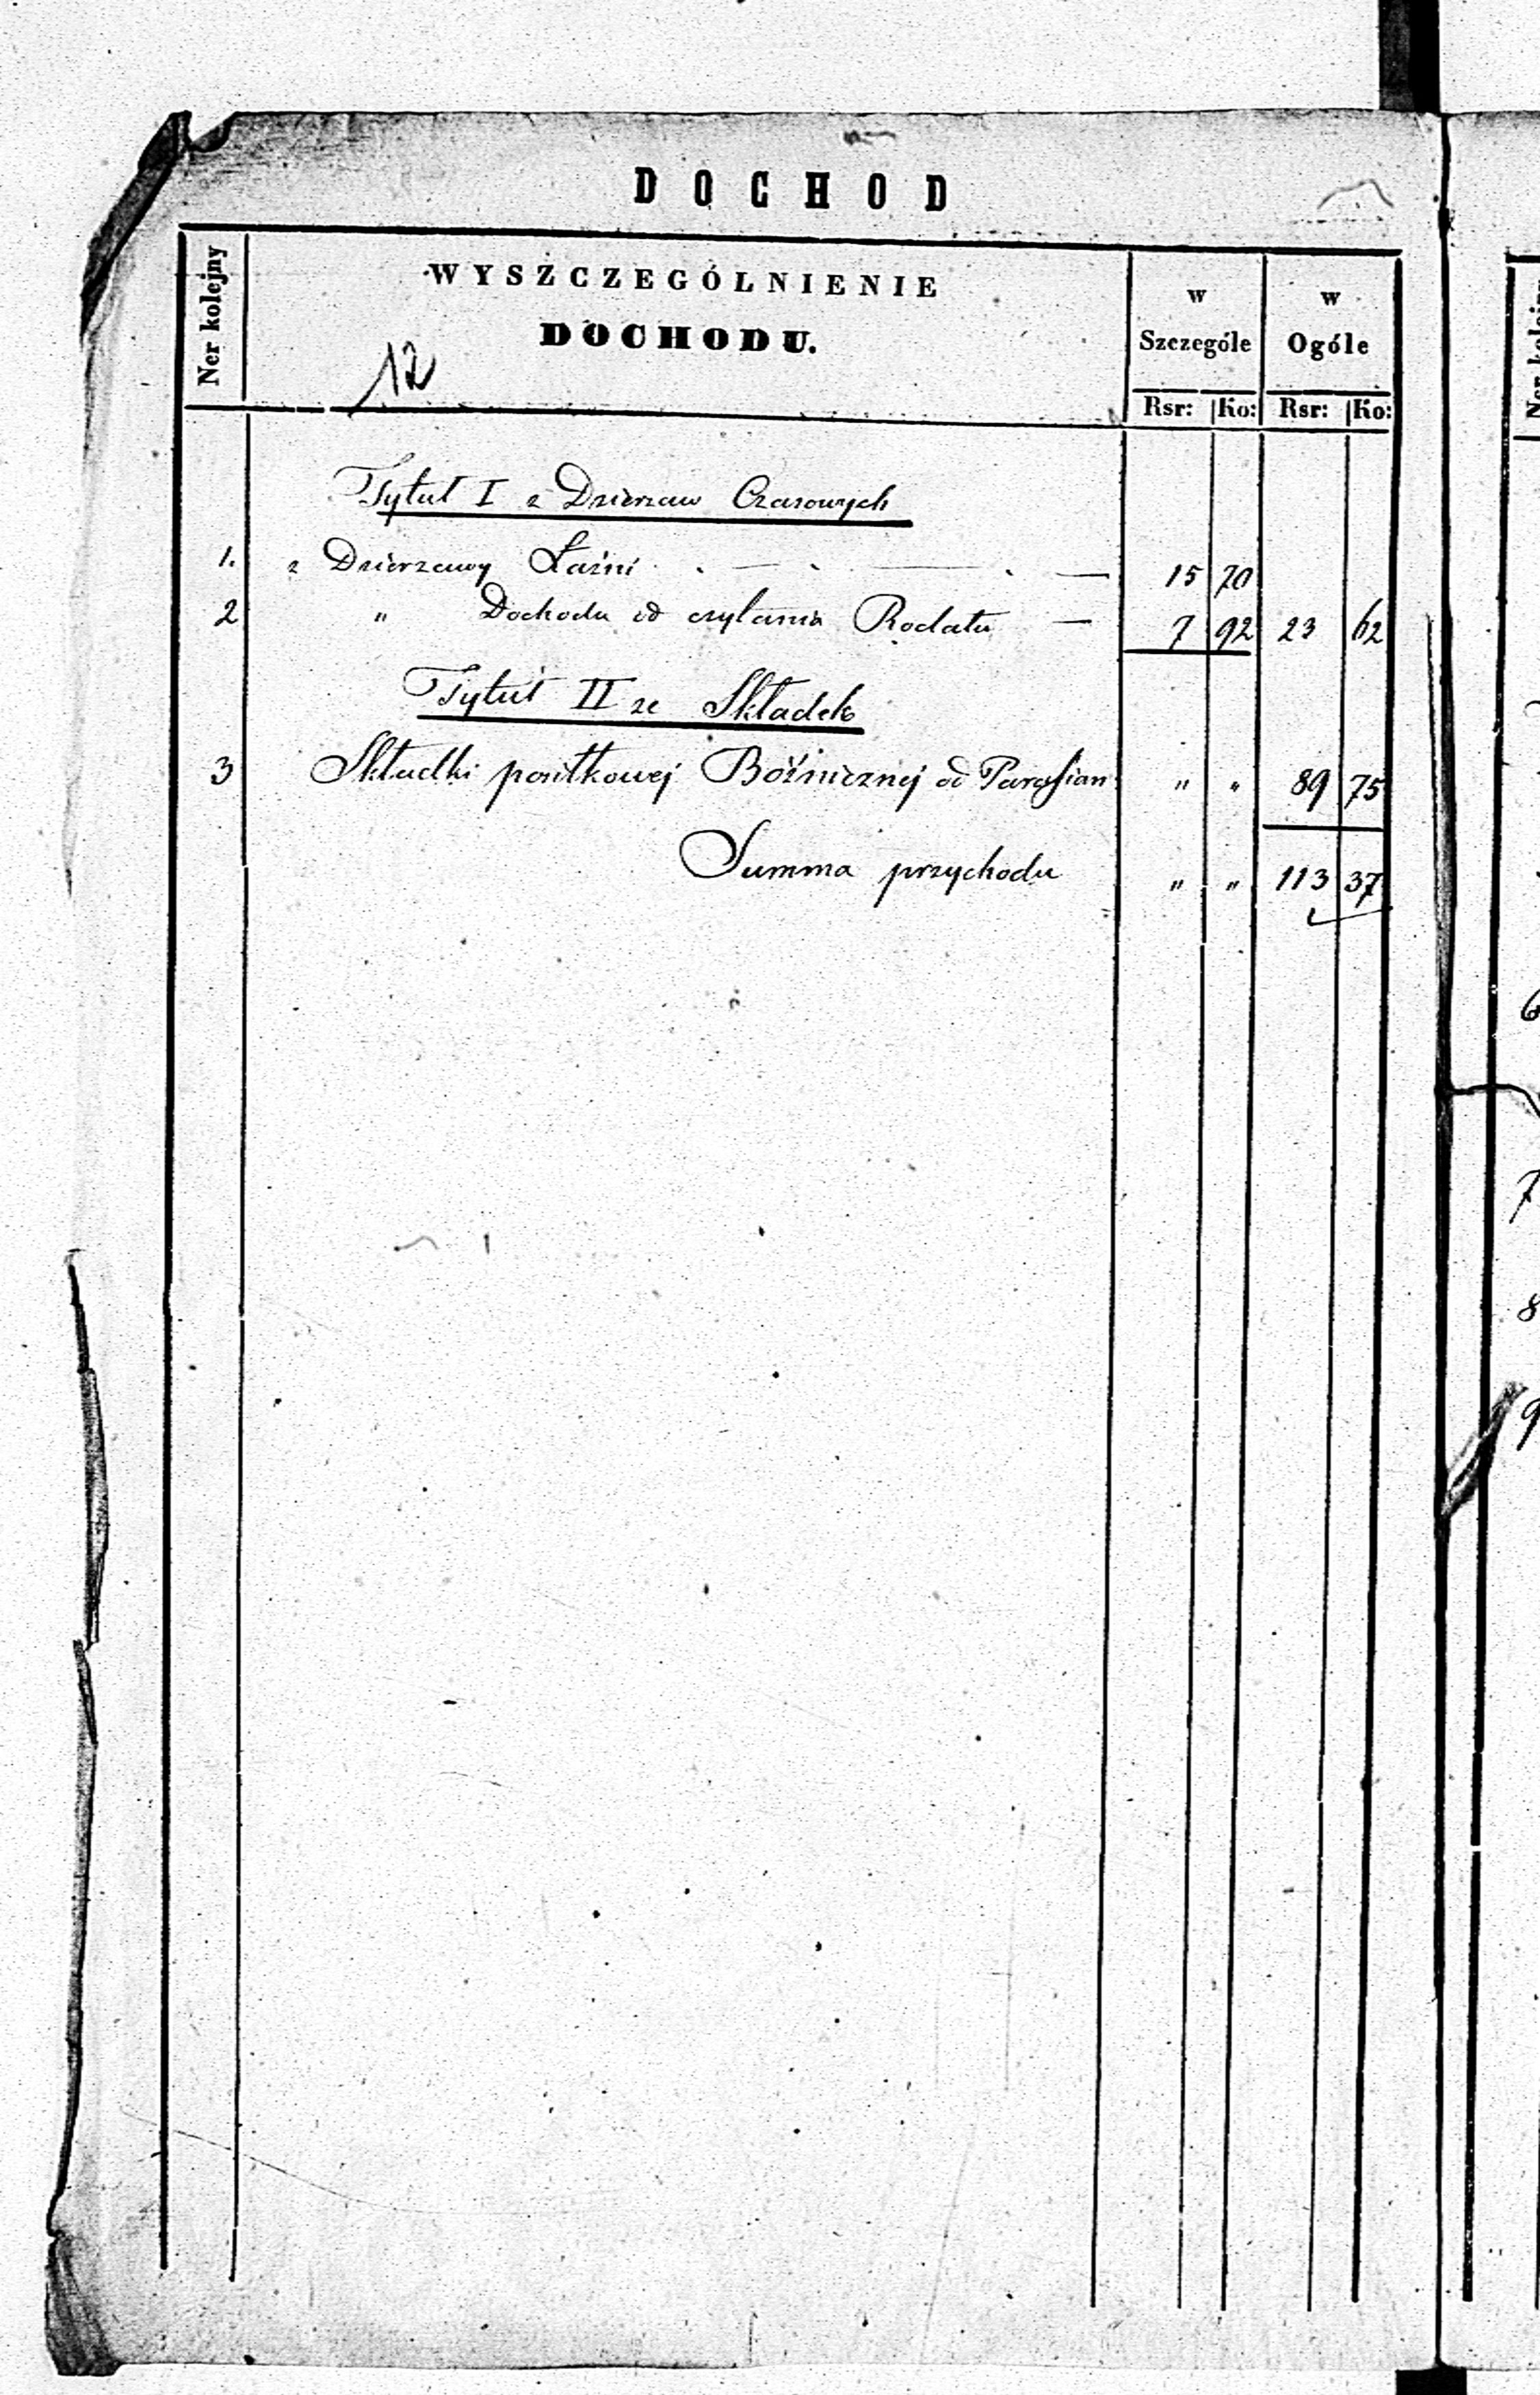 DOCHOD
Ner kolejny
WYSZCZEGÓLNIENIE
DOCHODU.
w Szczególe
w Ogóle
Rsr: Ko: Rsr: Ko:
12
Tytuł I z Dzierzaw Czasowych
1. z Dzierzawy Łaźni 15 70
2 " Dochodu od czytania Rodału 7 92 23 62
Tytuł II ze Składek
3 Składki positkowej Bóżnicznej od Parafian " " 89 75
Summa przychodu " " 113 37
6
7
8
9